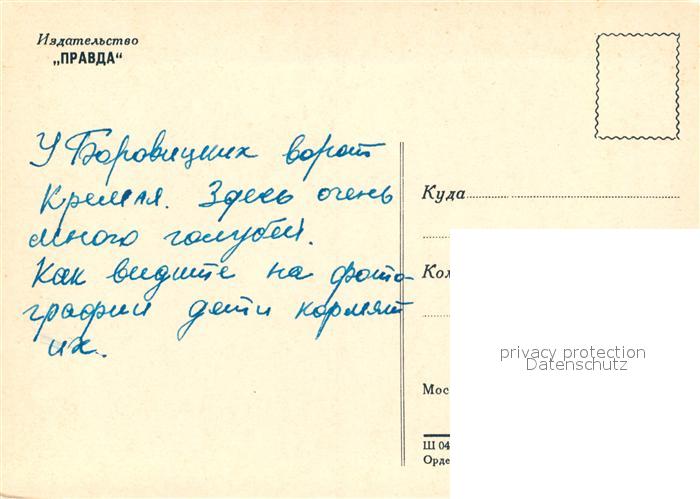 Издательство
„ПРАВДА“
У Боровицких ворот
Кремля. Здесь очень
много голубей.
Как видите на фото-
графии дети кормят
их.
Куда
Ко
Мос
Ш 04
Орде
privacy protection
Datenschutz